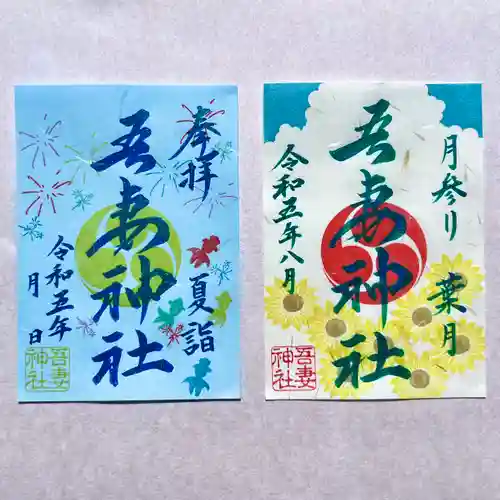 奉拝
夏詣
吾妻神社
令和五年
月 日
吾妻
神社
月参り 葉月
吾妻神社
令和五年八月
吾妻
神社